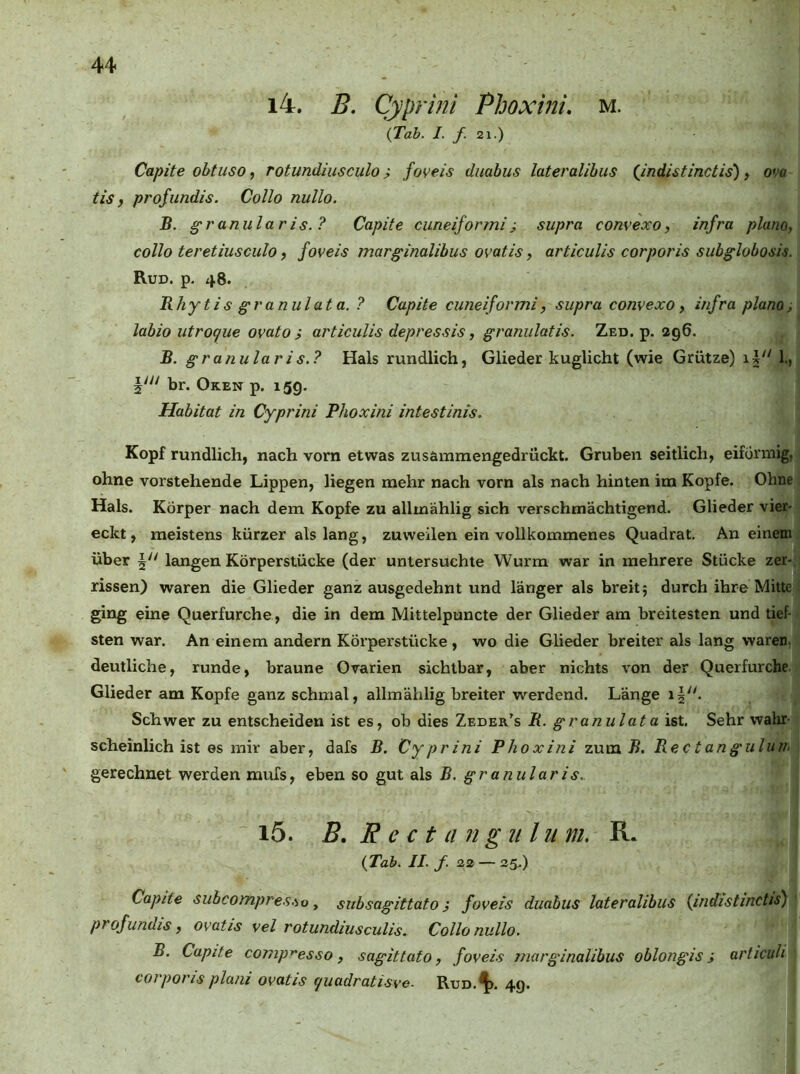 44
14. B. Cyprini Phoxini. M.
(Tab. I. f. 21.)
Capite obtuso, rotundiusculo; foveis duabus lateralibus (indistinctis), ova-
tis, profundis. Collo nullo.
B. granularis.? Capite cuneiformi; supra convexo, infra plano,
collo teretiusculo, foveis marginalibus ovatis, articulis corporis subglobosis.
Rud. p. 48.
Rhytis granulata.? Capite cuneiformi, supra convexo, infra plano;
labio utroque ovato; articulis depressis, granulatis. Zed. p. 296.
B. granularis.? Hals rundlich, Glieder kuglicht (wie Grütze) 1½″ l.,
½‴ br. Oken p. 159.
Habitat in Cyprini Phoxini intestinis.
Kopf rundlich, nach vorn etwas zusammengedrückt. Gruben seitlich, eiförmig,
ohne vorstehende Lippen, liegen mehr nach vorn als nach hinten im Kopfe. Ohne
Hals. Körper nach dem Kopfe zu allmählig sich verschmächtigend. Glieder vier-
eckt, meistens kürzer als lang, zuweilen ein vollkommenes Quadrat. An einem
über ½″ langen Körperstücke (der untersuchte Wurm war in mehrere Stücke zer-
rissen) waren die Glieder ganz ausgedehnt und länger als breit; durch ihre Mitte
ging eine Querfurche, die in dem Mittelpuncte der Glieder am breitesten und tief-
sten war. An einem andern Körperstücke, wo die Glieder breiter als lang waren,
deutliche, runde, braune Ovarien sichtbar, aber nichts von der Querfurche.
Glieder am Kopfe ganz schmal, allmählig breiter werdend. Länge 1½″.
Schwer zu entscheiden ist es, ob dies Zeder's R. granulata ist. Sehr wahr-
scheinlich ist es mir aber, dafs B. Cyprini Phoxini zum B. Rectangulum
gerechnet werden mufs, eben so gut als B. granularis.
15. B. Rectangulum. R.
(Tab. II. f. 22—25.)
Capite subcompresso, subsagittato; foveis duabus lateralibus (indistinctis)
profundis, ovatis vel rotundiusculis. Collo nullo.
B. Capite compresso, sagittato, foveis marginalibus oblongis; articuli
corporis plani ovatis quadratisve. Rud. p. 49.